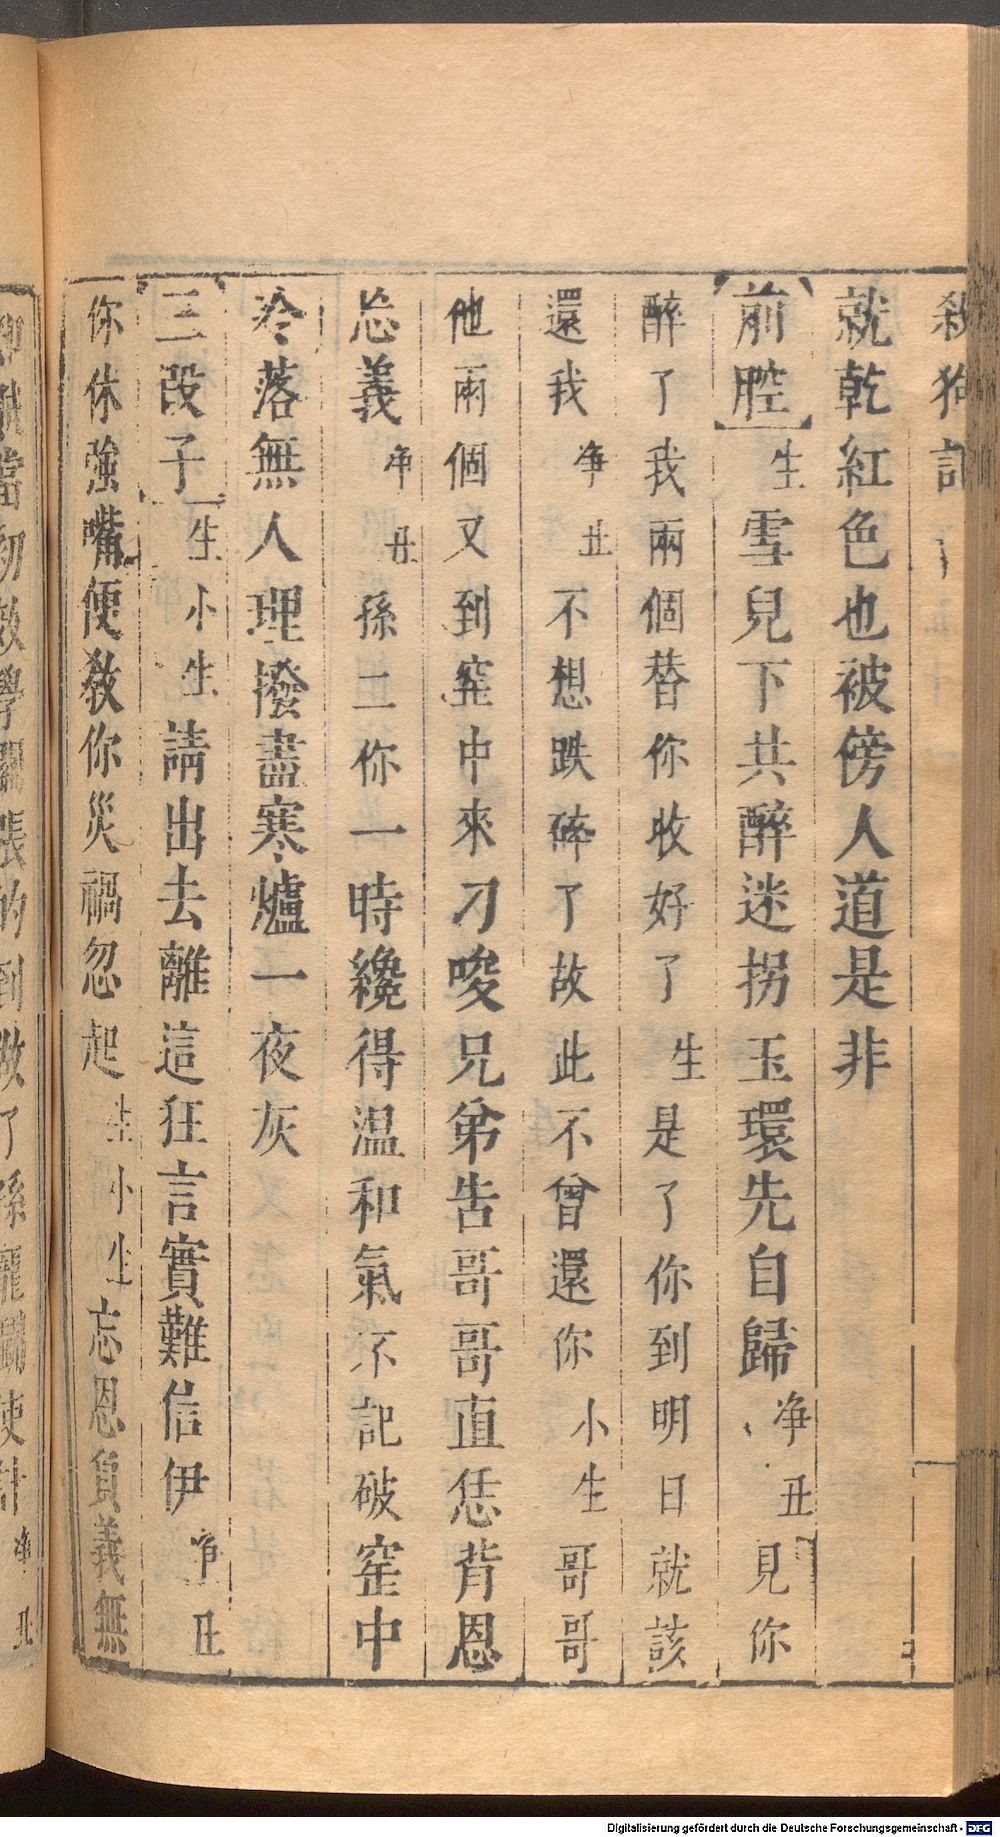 殺狗記
就乾紅色也被傍人道是非
【前腔】生雪兒下共醉迷拐玉環先自歸净丑見你
醉了我兩個替你收好了生是了你到明日就該
還我净丑不想跌碎了故此不曾還你小生哥哥
他兩個又到窑中來刁唆兄弟告哥哥直恁背恩
忘義净丑孫二你一時纔得温和氣不記破窑中
冷落無人理撥盡寒爐一夜灰
【三段子】生小生請出去離這狂言實難信伊净丑
你休強嘴便教你災禍忽起生小生忘恩負義無
當初
學
張的到
做了孫龐鬪使計净丑
Digitalisierung gefördert durch die Deutsche Forschungsgemeinschaft - DFG